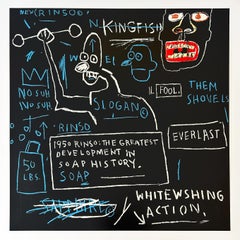 NEW(RINSO)
N. KINGFISH
W EI
NO SUH
NO SUH
SLOGAN©
II. FOOL.
THEM
SHOVELS
RINSO
1950 RINSO: THE GREATEST
DEVELOPMENT IN
SOAP HISTORY.
SOAP
EVERLAST
50
LBS.
WHITEWSHING
ACTION.